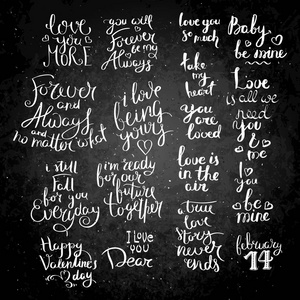 love
you
MORE
you will
Forever
be my
Always
love you
so much
Baby
be mine
Forever
and
Always
and
no matter what
i love
being
yours
take
my
heart
you
are
loved
Love
is all we
need
You
&
me
i still
Fall
for you
Everyday
i'm ready
for our
future
together
love is
in the
air
I
you
be
mine
Happy
Valentine's
day
I love
you
Dear
a true
love
story
never
ends
february
14